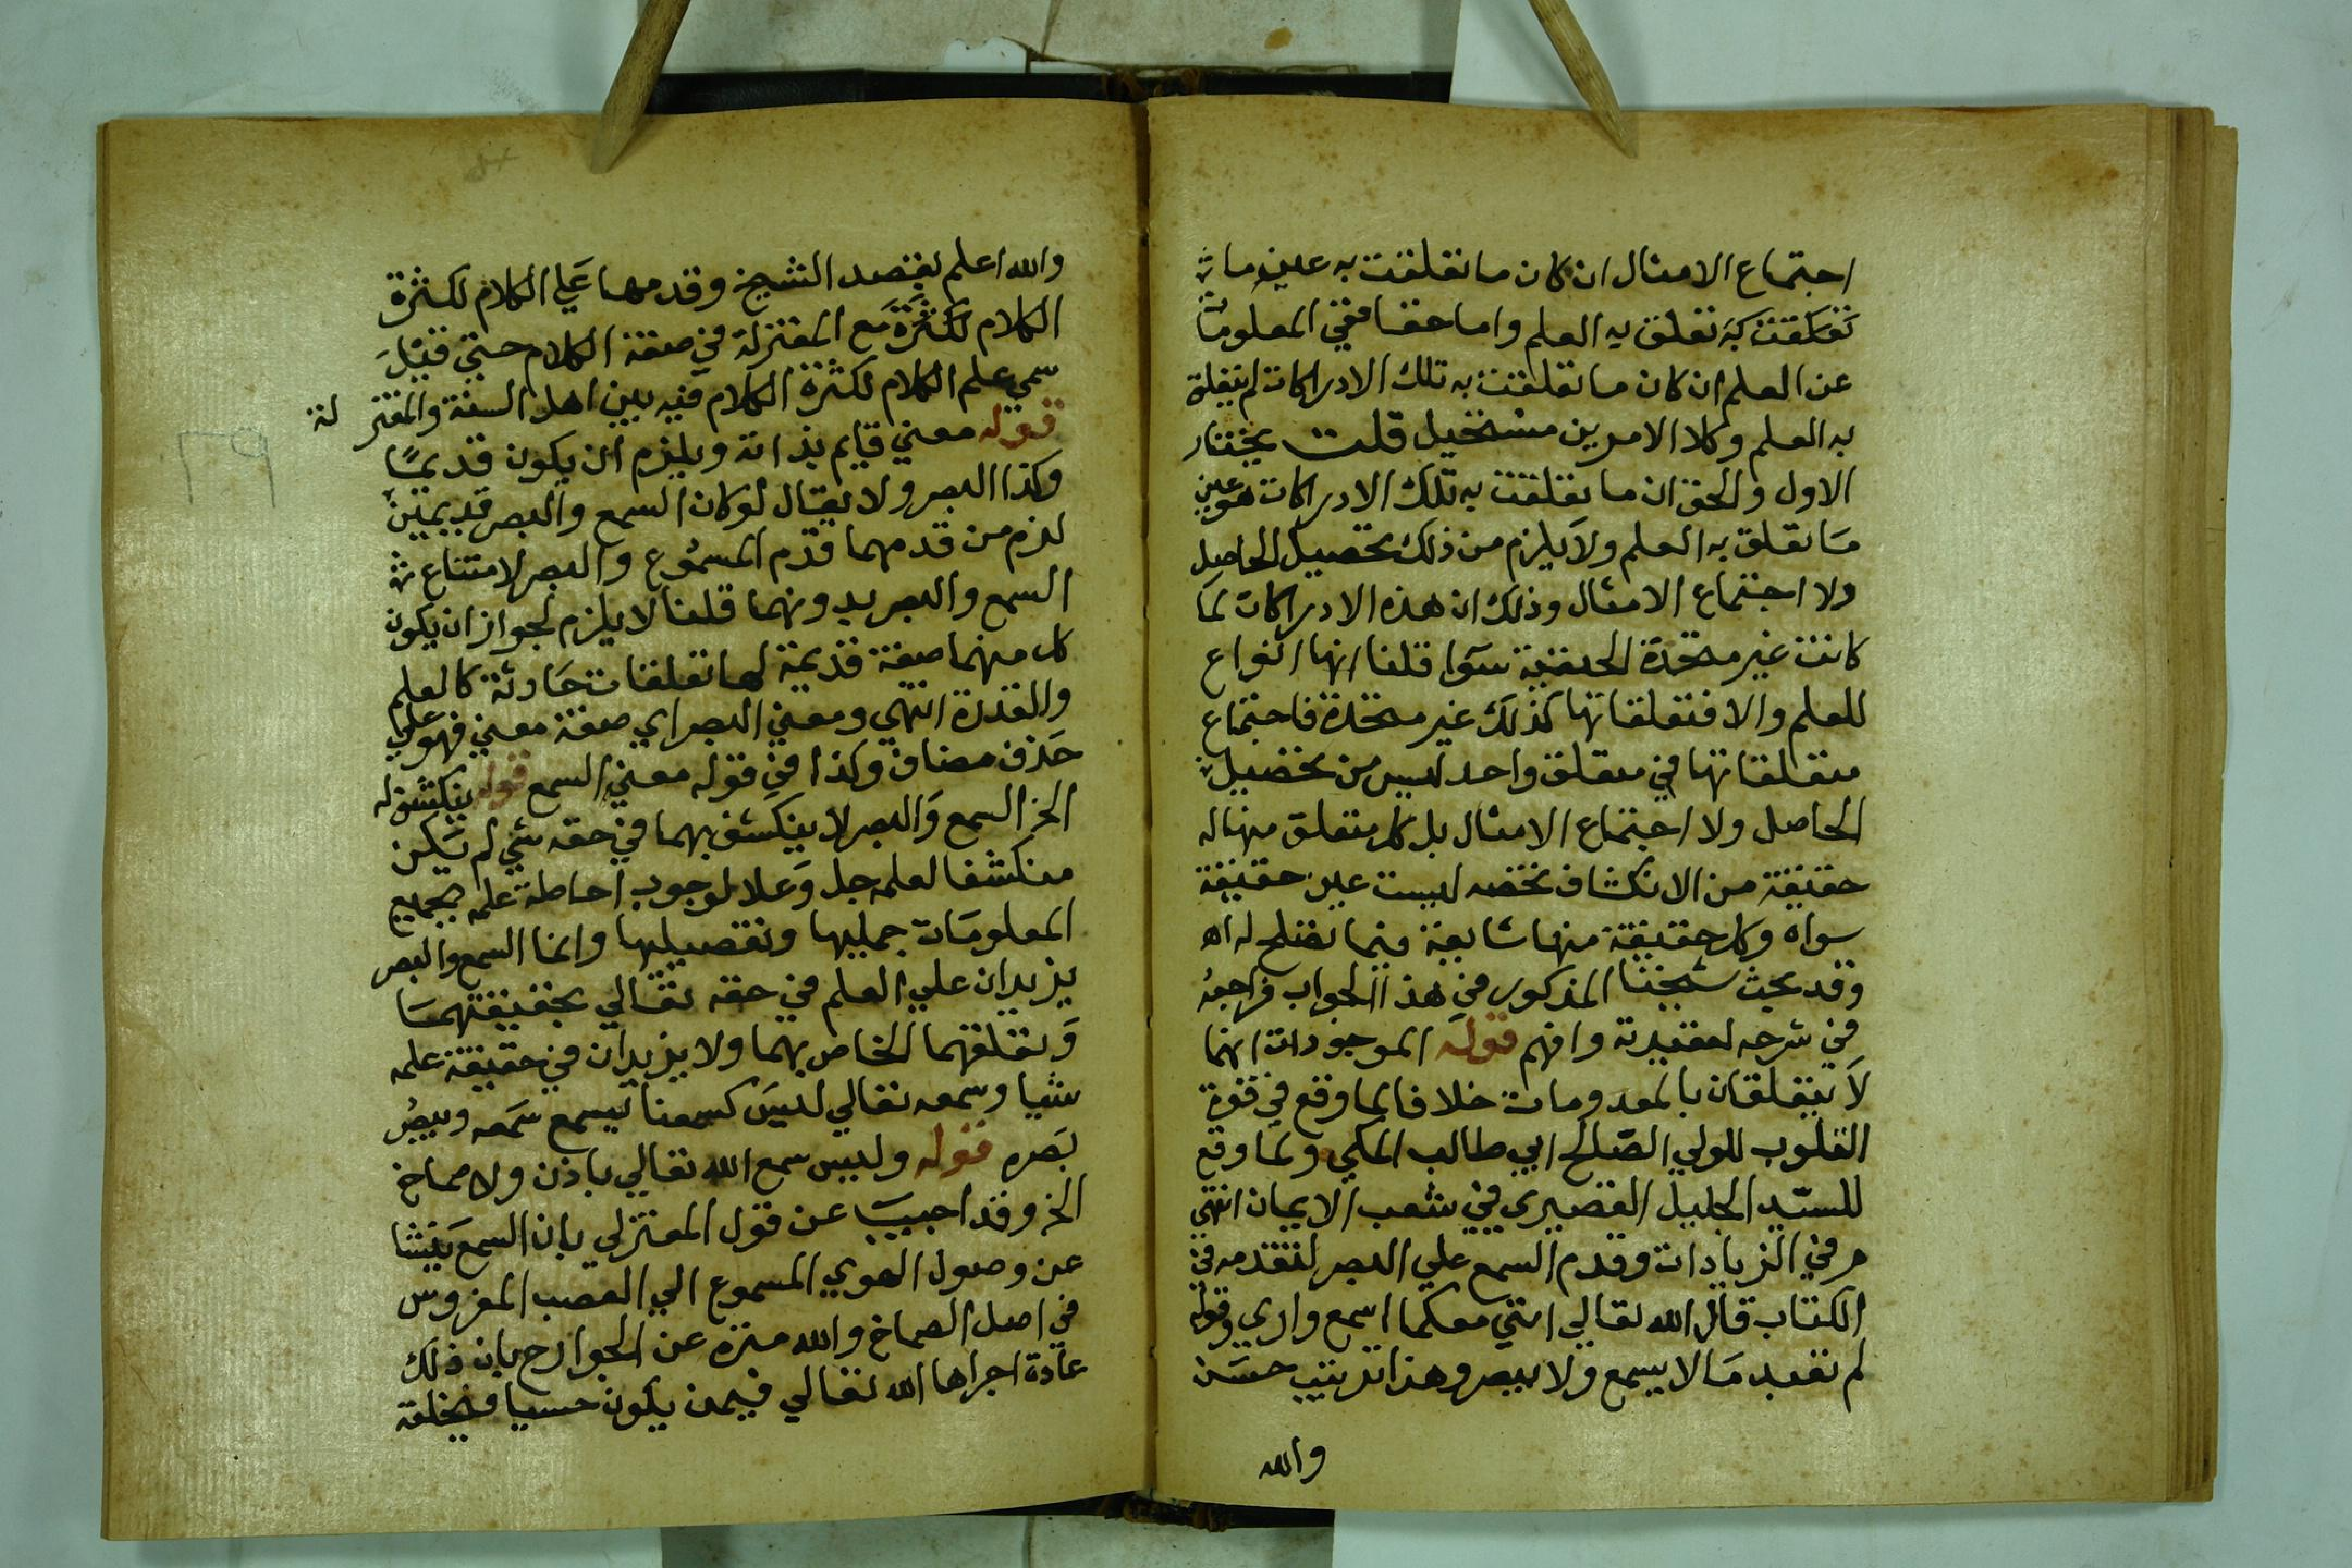 اجتماع الامثال ان كان ما تعلقت به عين ما
تعلقت به تعلق به العلم واما خفا ففي المعلومات
عن العلم ان كان ما تعلقت به تلك الادراكات لم يتعلق
به العلم وكلا الامرين مستحيل قلت يختار
الاول والحق ان ما تعلقت به تلك الادراكات هو عين
ما تعلق به العلم ولا يلزم من ذلك تحصيل الحاصل
ولا اجتماع الامثال وذلك ان هذه الادراكات لما
كانت غير متحدة الحقيقة سوا قلنا انها انواع
للعلم والا فتعلقاتها كذلك غير متحدة فاجتماع
متعلقاتها في متعلق واحد ليس من تحصيل
الحاصل ولا اجتماع الامثال بل كل متعلق منها له
حقيقة من الانكشاف تخصه ليست عين حقيقة
سواه وكل حقيقة منها شايعة فيما تصلح له اه
وقد بحث شيخنا المذكور في هذا الجواب فراجعه
في شرحه لعقيدته وافهم قوله الموجودات انهما
لا يتعلقان بالمعدومات خلافا لما وقع في قوة
القلوب للولي الصالح ابي طالب المكي ولما وقع
للسيد الجليل القصيرى في شعب الايمان انتهي
م في الزيادات وقدم السمع علي البصر لتقدمه في
الكتاب قال الله تعالي انني معكما اسمع واري وقوله
لم تعبد ما لا يسمع ولا يبصر وهذا ترتيب حسن
والله
والله اعلم بقصد الشيخ وقدمهما علي الكلام لكثرة
الكلام لكثرة مع المعتزلة في صفة الكلام حتي قيل
سمي علم الكلام لكثرة الكلام فيه بين اهل السنة والمعتز لة
قوله معني قايم بذاته ويلزم ان يكون قديما
وكذا البصر ولا يقال لو كان السمع والبصر قديمين
لزم من قدمهما قدم المسموع والبصر لامتناع
السمع والبصر بدونهما قلنا لا يلزم لجواز ان يكون
كل منهما صفة قديمة لها تعلقات حادثة كالعلم
والقدرة انتهي ومعني البصر اي صفة معني فهو علي
حذف مضاف وكذا في قوله معني السمع قوله ينكشف له
الخ السمع والبصر لا ينكشف بهما في حقه شي لم يكن
منكشفا لعلمه جل وعلا لوجوب احاطة علمه بجميع
المعلومات جمليها وتفصيليها وانما السمع والبصر
يزيدان علي العلم في حقه تعالي بحقيقتهما
وتعلقهما الخاص بهما ولا يزيدان في حقيقة علمه
شيا وسمعه تعالي ليس كسمعنا يسمع سمعه ويبصر
بصره قوله وليس سمع الله تعالي باذن ولا صماخ
الخ وقد اجيب عن قول المعتزلي بان السمع ينشا
عن وصول الهوي المسموع الي العصب المغروس
في اصل الصماخ والله منزه عن الجوارح بان ذلك
عادة اجراها الله تعالي فيمن يكون حسيا فيخلقه